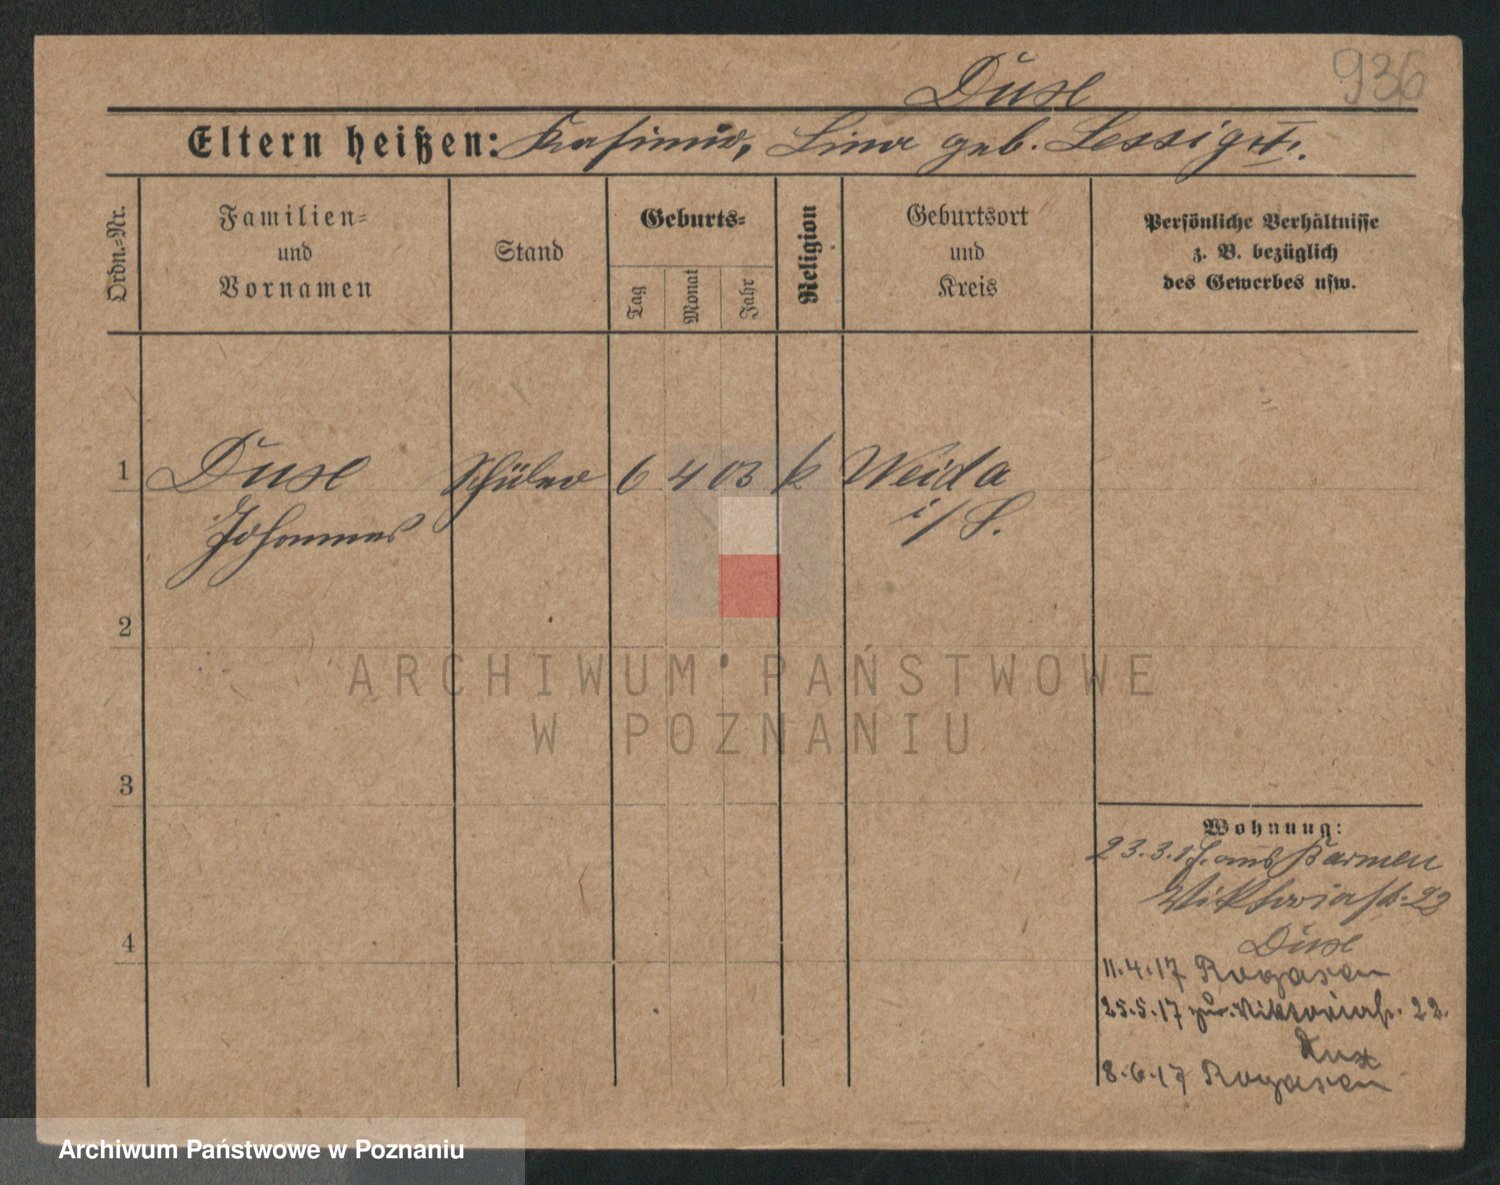 936
Duse
Eltern heißen: Kasimir, Lina geb. Lessig
Ordn.-Nr.
Familien-
und
Vornamen
Stand
Geburts-
Tag
Monat
Jahr
Religion
Geburtsort
und
Kreis
Persönliche Verhältnisse
z. B. bezüglich
des Gewerbes usw.
1 Duse Schüler 6 4 03 k Weida
Johannes i/S.
2
3
4
Wohnung:
23.3.17. aus Barmen
Viktoriastr. 22
Duse
11.4.17 Rogasen
25.5.17 zur. Viktoriastr. 22.
8.6.17 Rogasen
ARCHIWUM PAŃSTWOWE
W POZNANIU
Archiwum Państwowe w Poznaniu